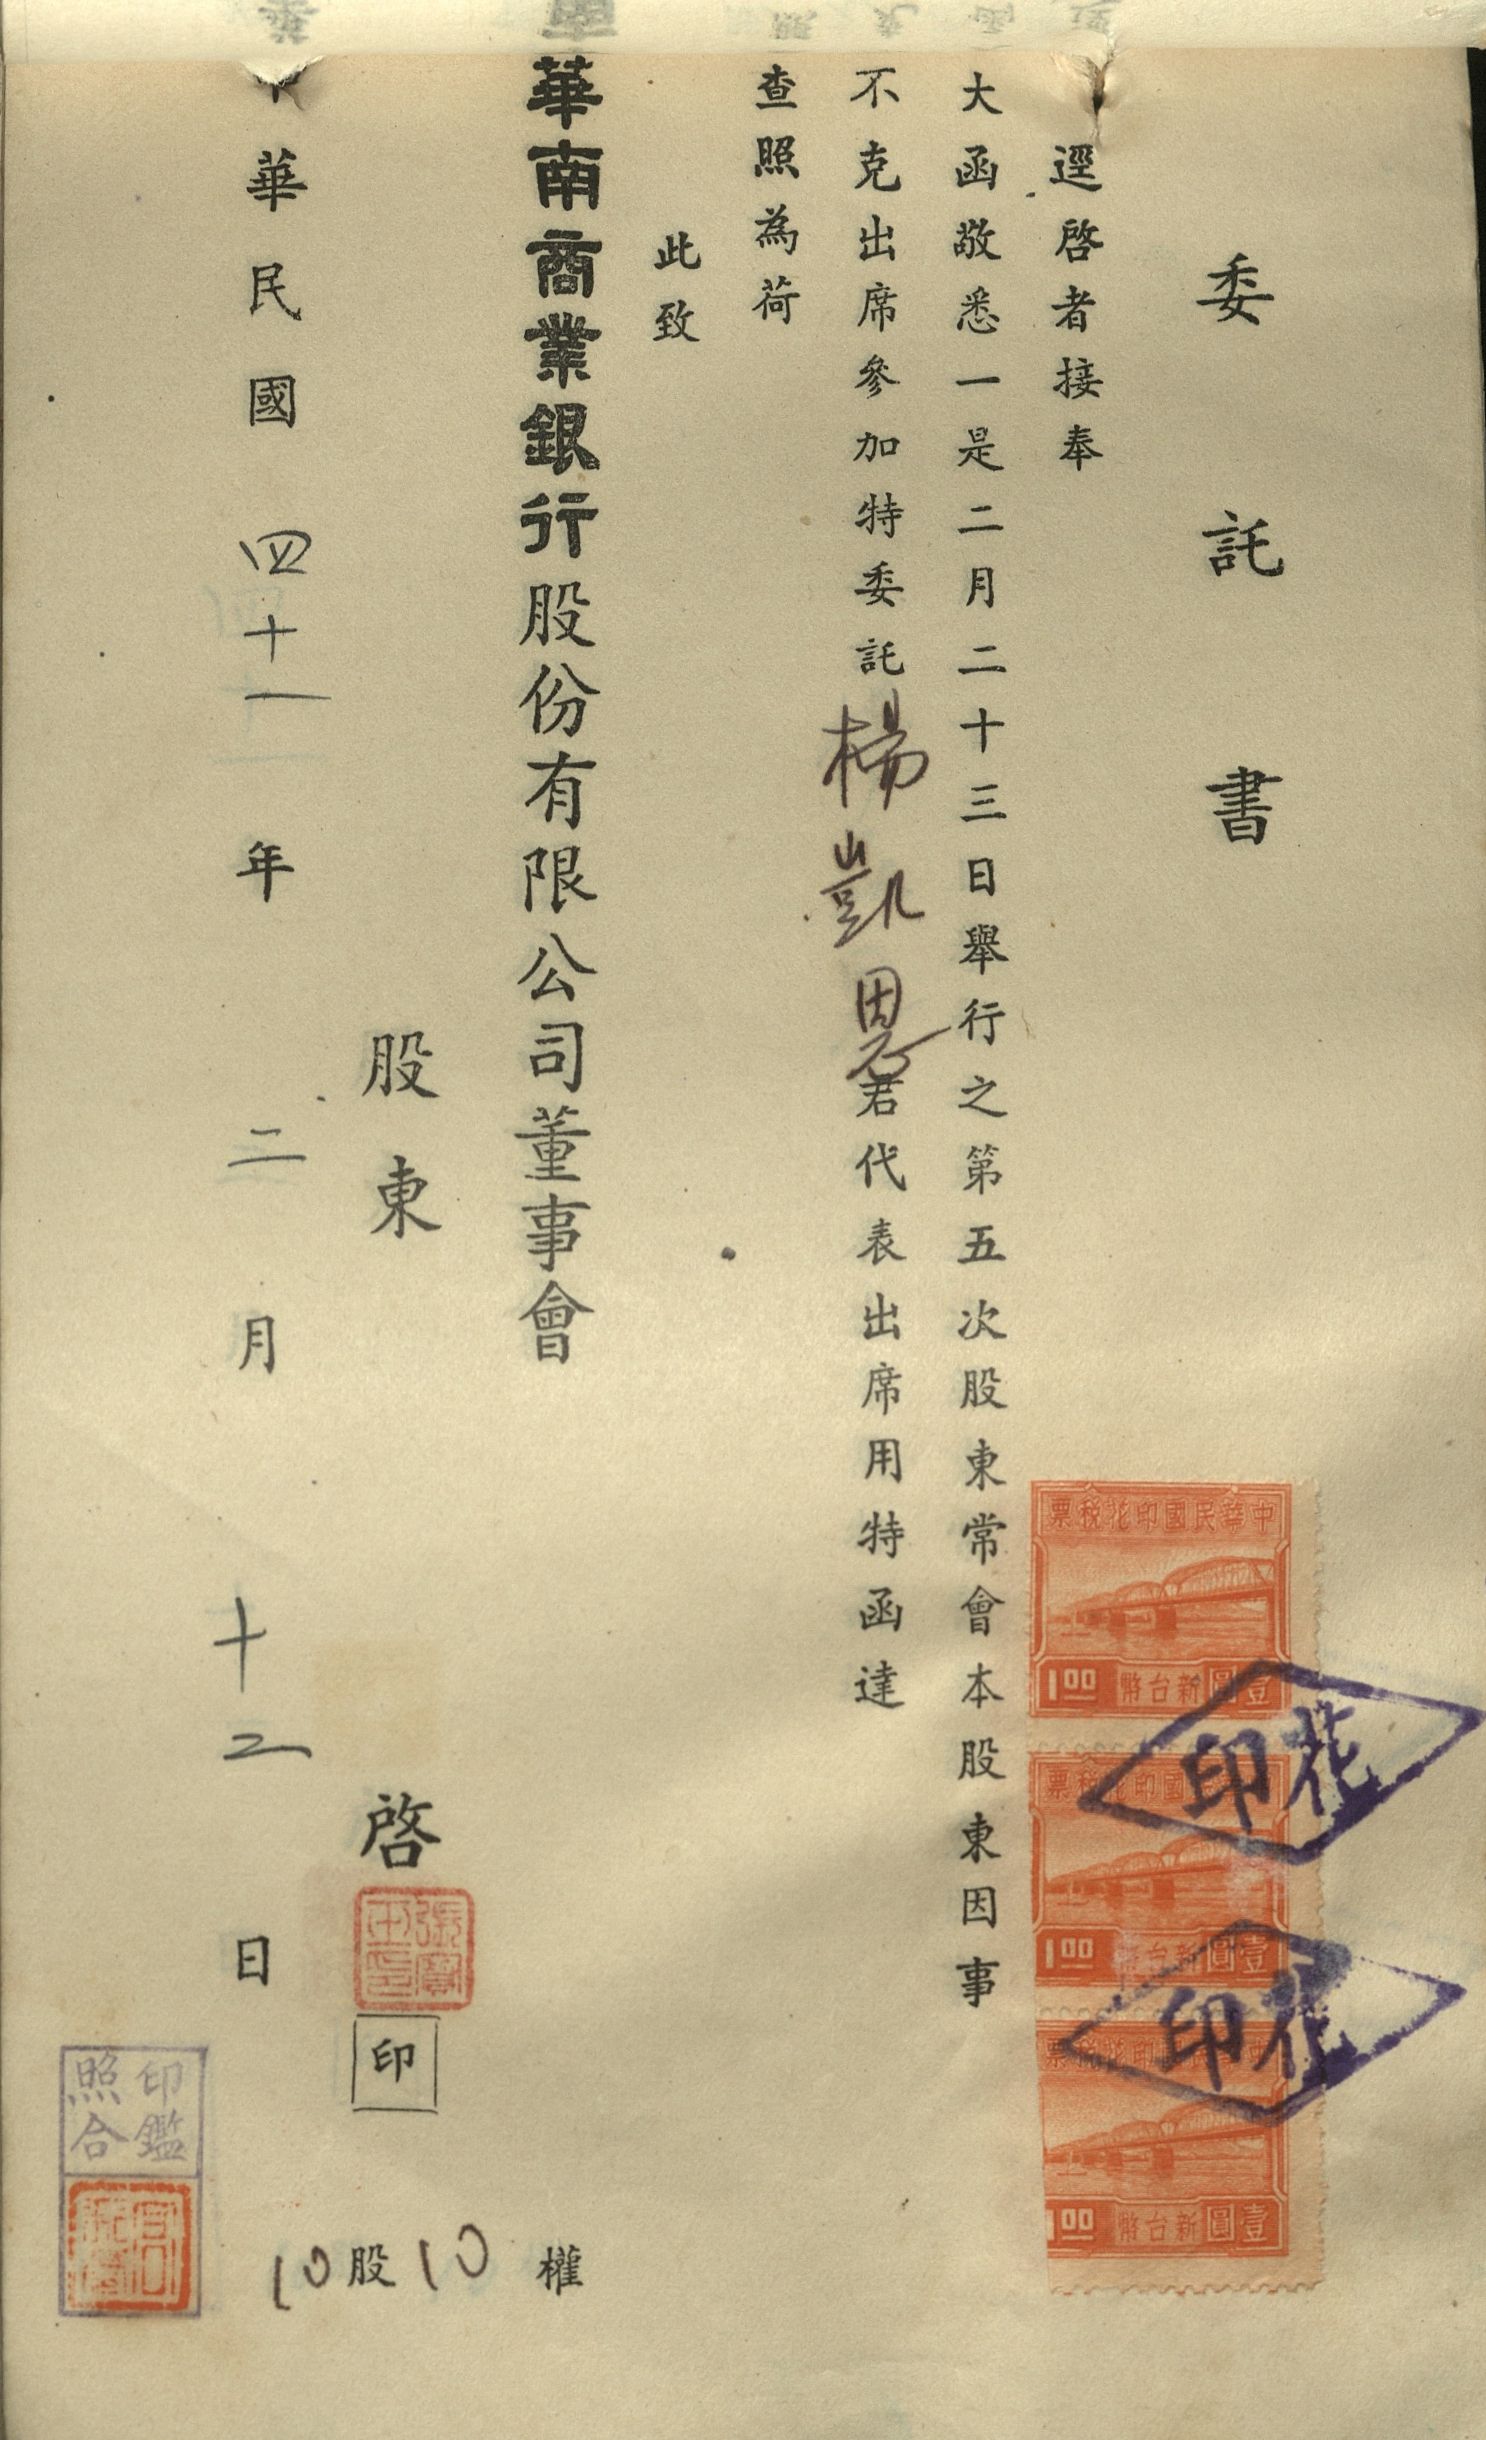 委託書
逕啓者接奉
大函敬悉一是二月二十三日舉行之第五次股東常會本股東因事
不克出席參加特委託楊凱恩君代表出席用特函達
查照為荷
此致
華南商業銀行股份有限公司董事會
股東 啓
印
10股10權
華民國四十一年二月十二日
印鑑
照合
中華民國印花稅票
壹圓新台幣 1.00
國印花稅票
壹圓新台幣 1.00
印花稅票
壹圓新台幣 1.00
印花
印花